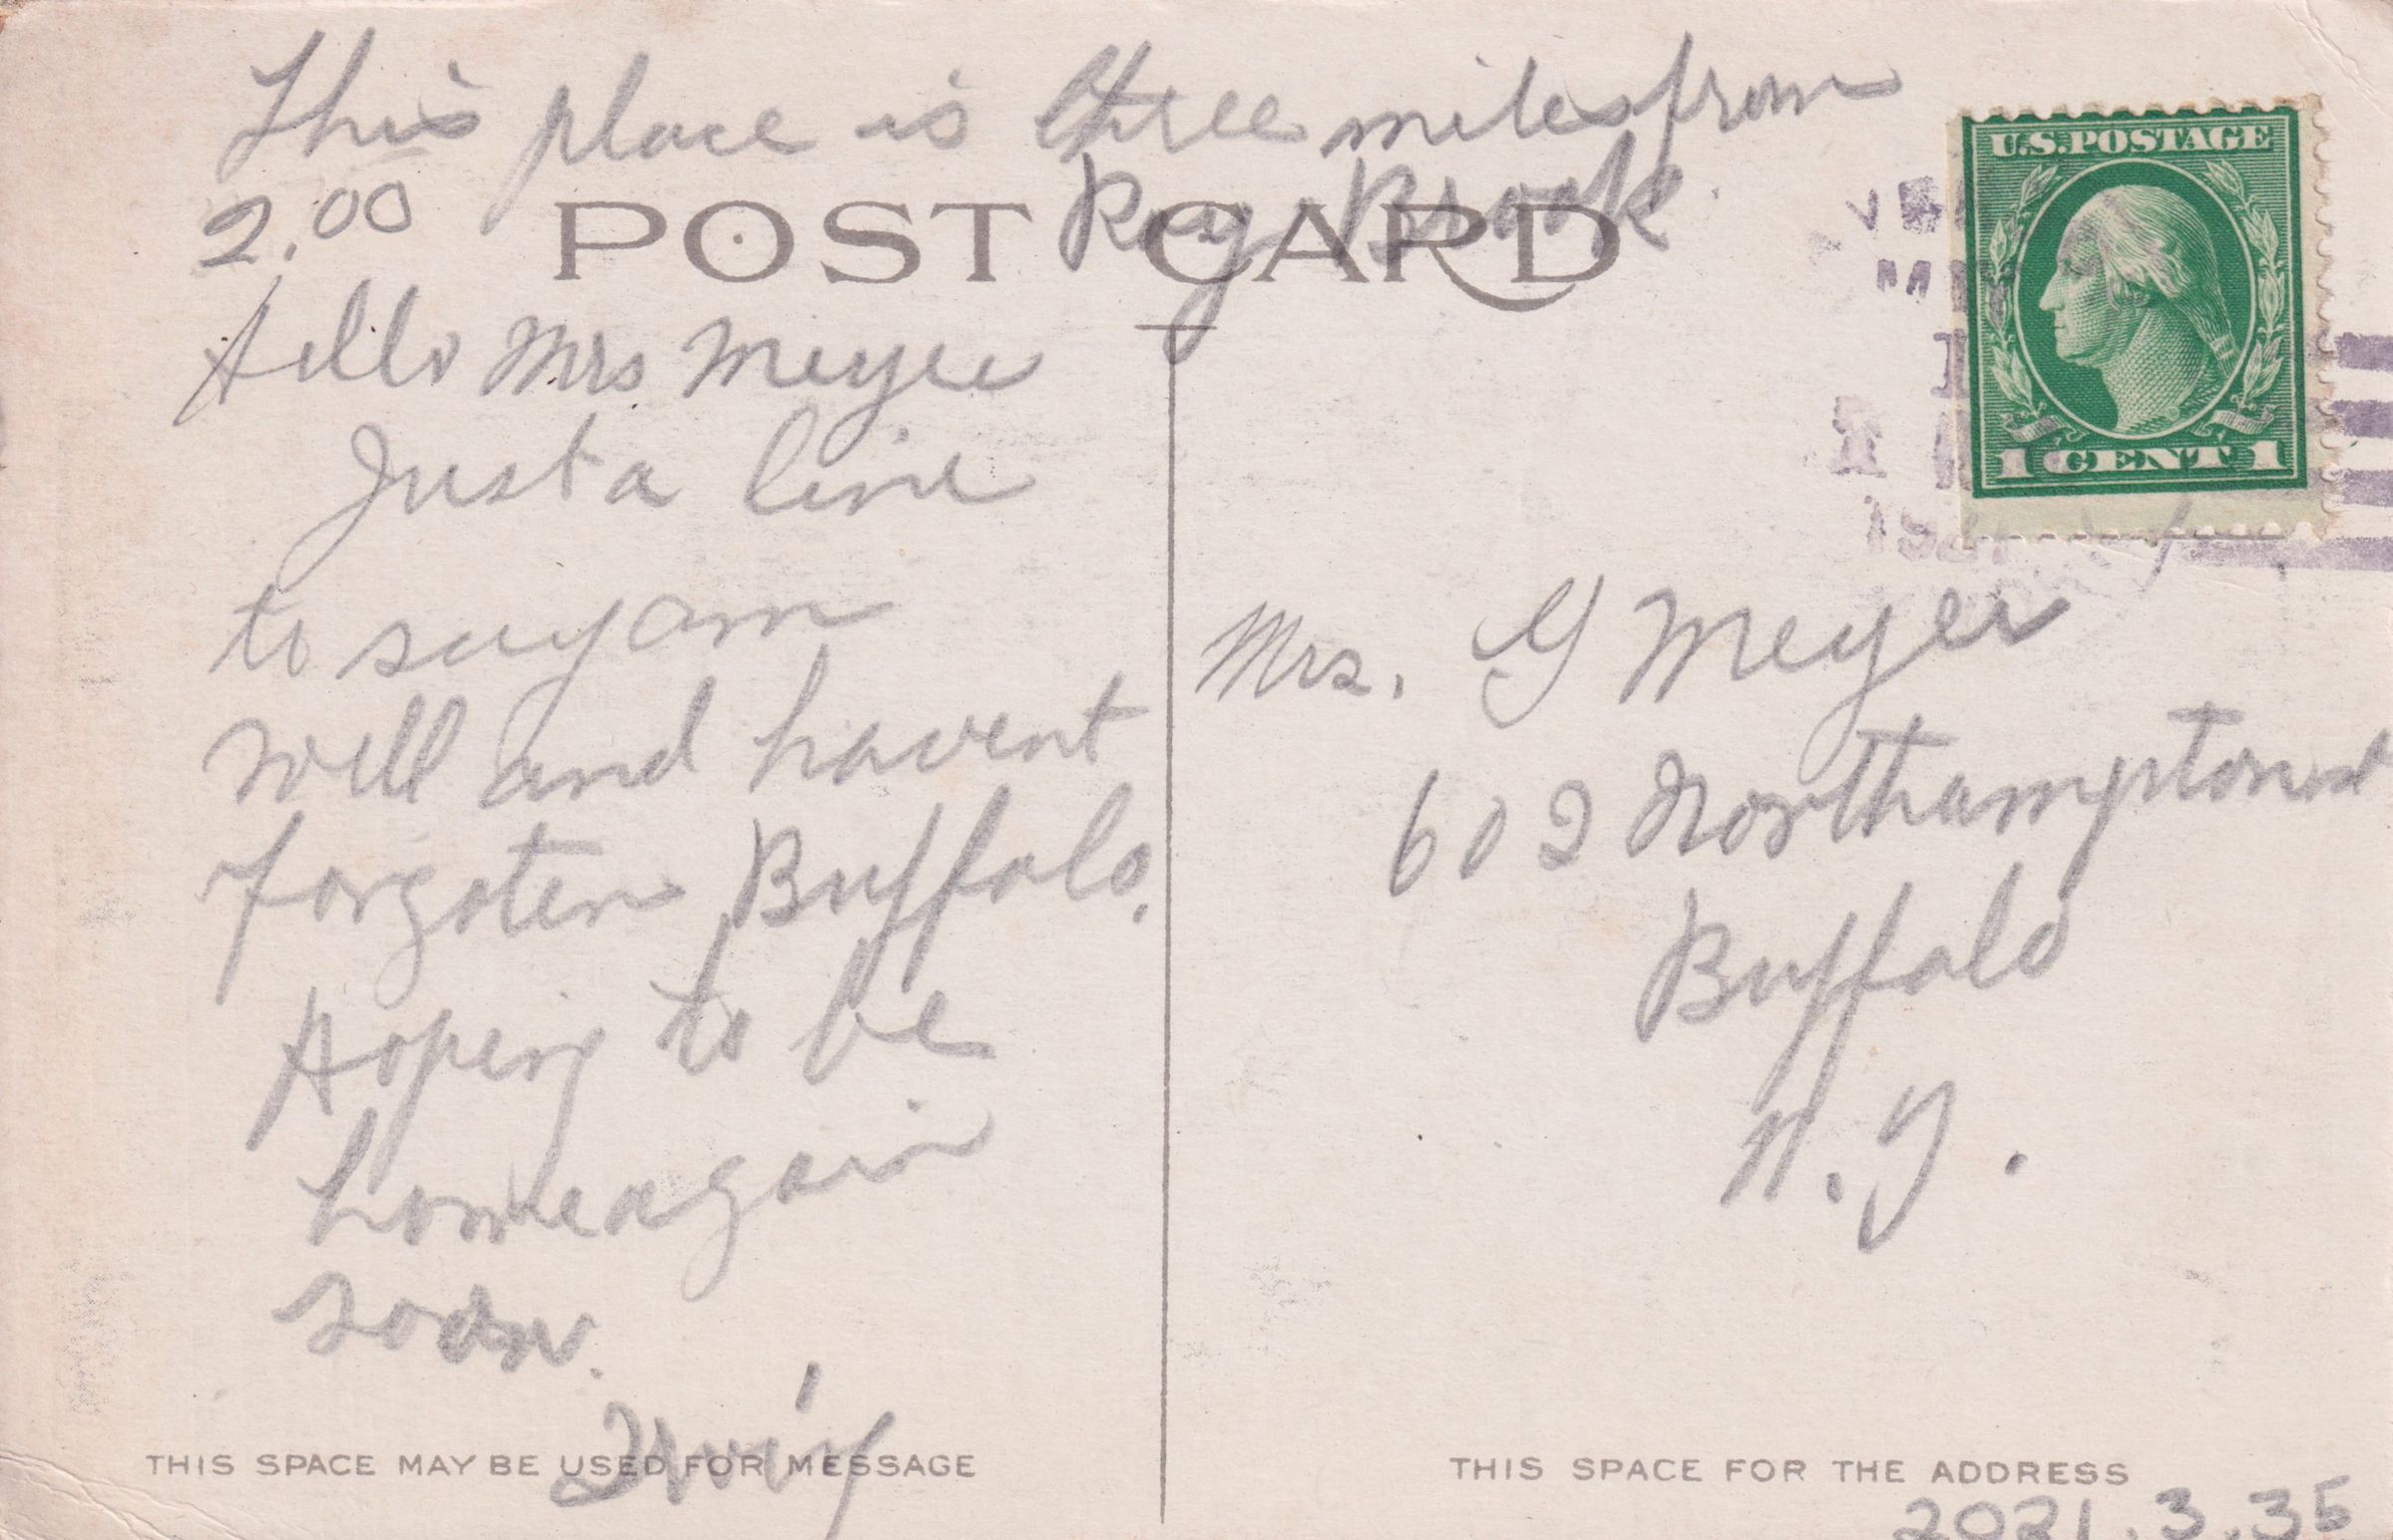 This place is three miles from
Ray Brook.
2.00
POST CARD
U.S. POSTAGE
1 CENT 1
Hello Mrs Meyer
Just a line
to say am
well and havent
forgoten Buffalo.
Hoping to be
home again
soon.
Irvig
Mrs. G Meyer
602 Northampton st
Buffalo
N.Y.
THIS SPACE MAY BE USED FOR MESSAGE
THIS SPACE FOR THE ADDRESS
2021.3.35